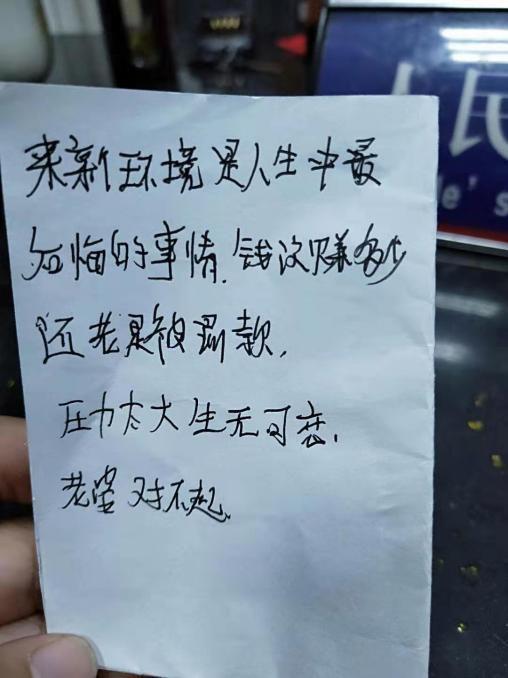 人民
le's
来新环境是人生中最
后悔的事情.钱没赚多少
还老是被罚款.
压力太大生无可恋.
老婆对不起.